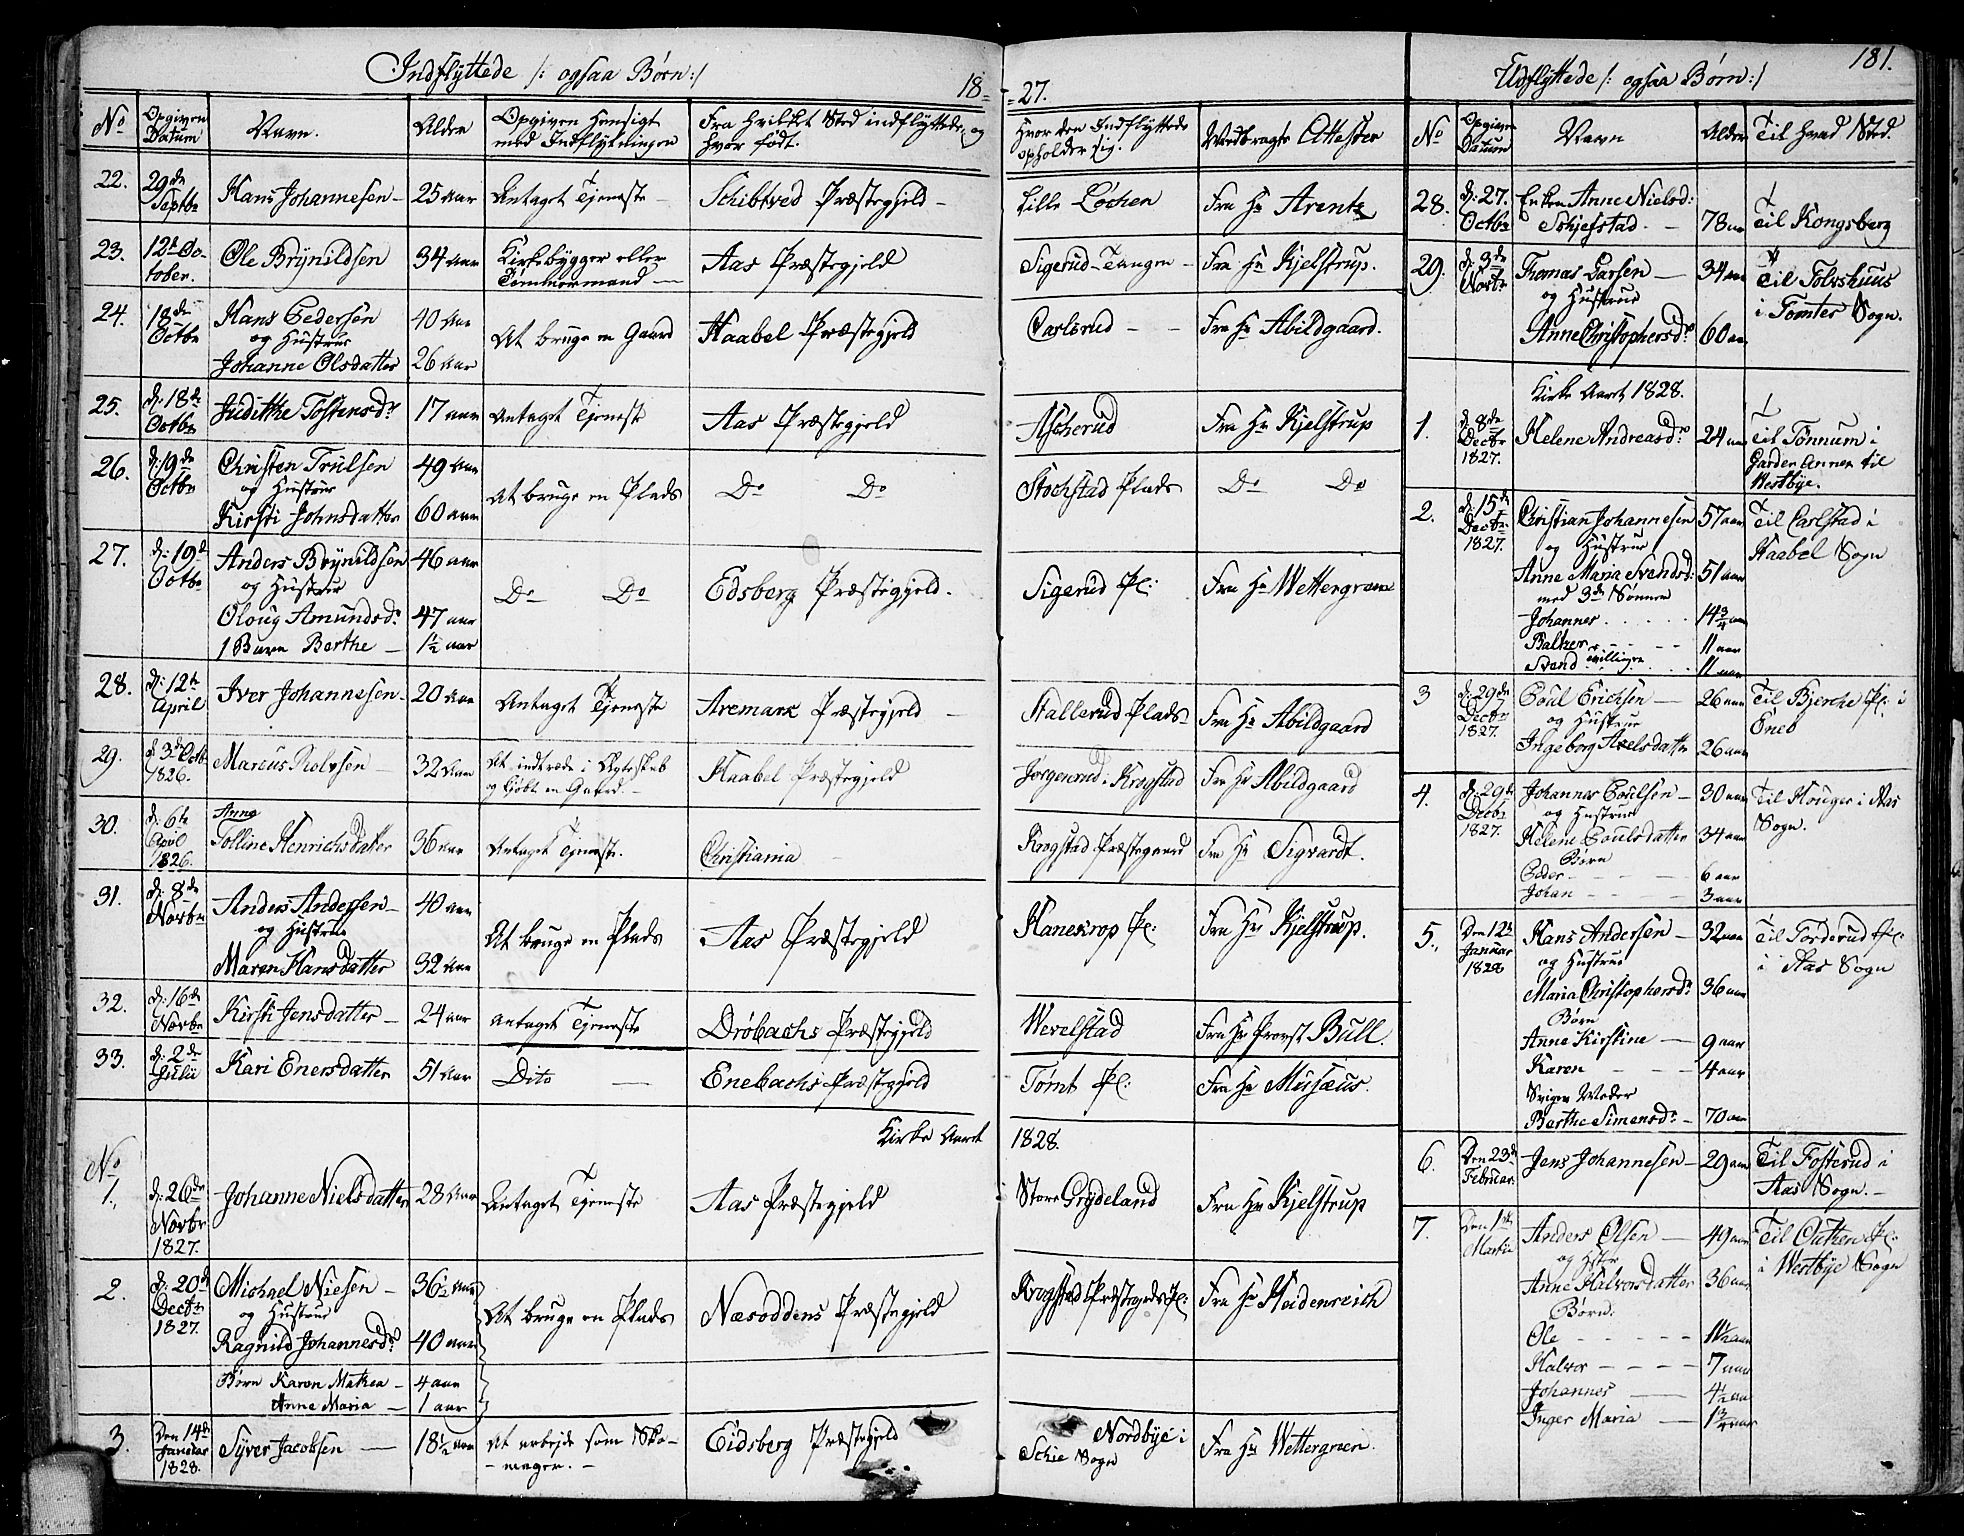 Indflyttede /: ogsaa Børn:/
18=
=27.
Udflyttede /: ogsaa Børn:/
181.
No
Opgiven Datum
Navn.
Alder
Opgiven Hensigt med Indflytningen
Fra hvilket Sted indflyttede og hvor født.
Hvor den Indflyttede opholder sig.
Medbragte Attester
22. 29de Septbr Hans Johannesen - 25 aar Antaget Tjeneste - Schibtved Præstegjeld - Lille Løchen Fra Hr Arentz
23. 12t October. Ole Brynildsen 34 aar Kirkebygger eller Tømmermand - Aas Præstegjeld Sigerud-Tangen - Fra Hr Kjelstrup.
24. 18de Octbr Hans Pedersen 40 aar At bruge en Gaard Haabøl Præstegjeld Carlsrud - - Fra Hr Abildgaard.
og Hustrue
Johanne Olsdatter 26 aar
25. d: 18de Octbr Judithe Tostensdr 17 aar Antaget Tjeneste Aas Præstegjeld Ascherud Fra Hr Kjelstrup
26. d: 19de Octbr Christen Trulsen 49 aar At bruge en Plads Do Do Stochstad Plads Do Do
og Hustrue
Kirsti Johnsdatter 60 aar
27. d: 19d Octbr Anders Brynildsen 46 aar Do Do Edsberg Præstegjeld. Sigerud Pl: Fra Hr Wettergreen
og Hustrue
Oloug Amundsdr 47 aar
1 Barn Berthe - 1½ aar
28. d: 12te April Iver Johannesen - 20 aar Antaget Tjeneste Aremark Præstegjeld - Stallerud Plads Fra Hr Abildgaard
29. d 3de Octbr 1826. Marcus Rolvsen - 32 aar At indtræde i Ægteskab og kjøbt en Gaard. - Haabøl Præstegjeld Jørgenrud i Krogstad Fra Hr Abildgaard
30. d: 6te April 1826. Anne Tolline Henrichsdatter 36 aar Antaget Tjeneste. Christiania Krogstad Præstegaard Fra Hr Sigvardt.
31. d: 8de Novbr Anders Andersen - 40 aar At bruge en Plads Aas Præstegjeld Hanekrop Pl: Fra Hr Kjelstrup.
og Hustrue
Maren Hansdatter 32 aar
32. d: 16de Novbr Kirsti Jensdatter - 24 aar antaget Tjeneste Drøbachs Præstegjeld Wevelstad Fra Hr Provst Bull.
33. d: 2de Julii Kari Enersdatter 51 aar Dito - Enebachs Præstegjeld Tømt Pl: Fra Hr Musæus.
Kirke Aaret 1828.
No
1. d: 26de Novbr 1827. Johanne Nielsdatter 28 aar Antaget Tjeneste Aas Præstegjeld Store Grydeland Fra Hr Kjelstrup
2. d: 20d Decbr 1827. Michael Niesen - 36½ aar At bruge en Plads Næsoddens Præstegjeld Krogstad Præstegrds Pl: Fra Hr Heidenreich
og Hustrue
Ragnild Johannesdr 40 aar
Børn Karen Mathea - 4 aar
Anne Maria - 1 aar
3. Den 14de Januar 1828. Syver Jacobsen - 18½ aar At arbejde som Skomager. - Eidsberg Præstegjeld Nordbye i Schie Sogn Fra Hr Wettergreen.
No
Opgiven Datum
Navn
Alder
Til hvad Sted.
28. d: 27. Octbr Enken Anne Nielsd: Schjefstad. - 78 aar Til Kongsberg
29. d: 3de Novbr Thomas Larsen - 34 aar Til Tolvshuus i Tomter Sogn.
og Hustrue
Anne Christophersdr 60 aar
Kirke Aaret 1828.
1. d. 8de Decbr 1827. Helene Andreasdr 24 aar Til Tønnum i Garder Annex til Westbye.
2. d: 15de Decbr 1827. Christian Johannesen 57 aar Til Carlstad i Haabøl Sogn
og Hustrue
Anne Maria Svendsd: 51 aar
med 3de Sønner
Johannes . . . . . 14¾ aar
Baltzer - - - - 11 aar
Svend tvillinger . . 11 aar
3 d: 29de Decbr 1827. Poul Erichsen - 26 aar Til Bjerche Pl: i Eneb
og Hustrue
Ingeborg Axelsdatter 26 aar
4. d: 29de Decbr 1827. Johannes Poulsen - 30 aar Til Houger i Aas Sogn.
og Hustrue
Helene Poulsdatter 34 aar
Børn
Peder - - - - 6 aar
Johan - - - 3 aar
5. Den 12te Januar 1828 Hans Andersen - 32 aar Til Torderud Pl: i Aas Sogn
og Hustrue
Maria Christophersdr 36 aar
Børn
Anne Kirstine - 9 aar
Karen - - - 4 aar
Sviger Moder
Berthe Simensdr - 70 aar
6. Den 23de Februar. Jens Johannesen - 29 aar Til Fosterud i Aas Sogn. -
7. Den 1te Martii Anders Olsen - 49 aar Til Outhen Pl: i Westbye Sogn
og Hstr
Anne Halvorsdatter 36 aar
Børn:
Ole - - - - 11½ aar
Halvor - - - - 7 aar
Johannes - 4½ aar
Inger Maria - 1¾ aar